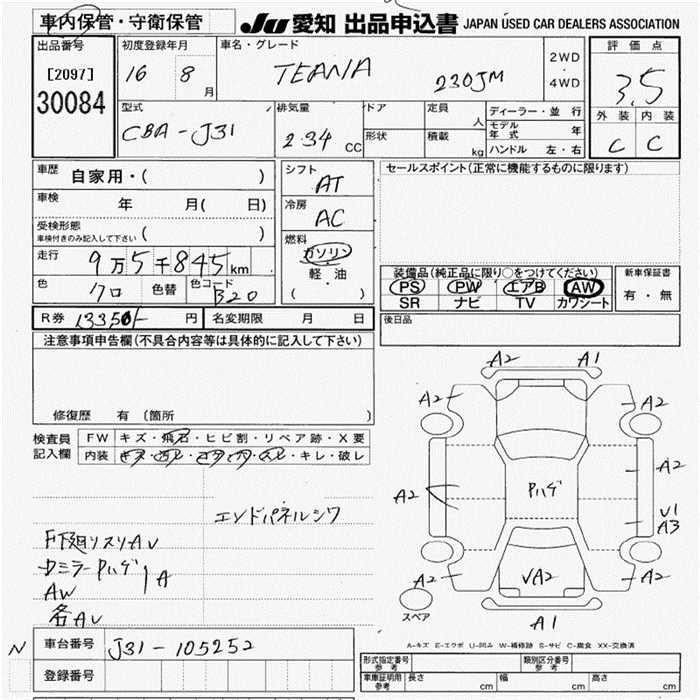 車内保管・守衛保管 JU 愛知 出品申込書 JAPAN USED CAR DEALERS ASSOCIATION
出品番号 初度登録年月 車名・グレード 2WD・4WD 評価点
[2097] 16 8月 TEANA 230JM 3.5
30084
型式 排気量 ドア 定員 人 ディーラー・並行 外装 内装
CBA-J31 2.34 CC 形状 積載 kg モデル年式 年 C C
ハンドル 左・右
車歴 自家用・( ) シフト AT セールスポイント(正常に機能するものに限ります)
車検 年 月( 日) 冷房 AC
受検形態 車検付きのみ記入して下さい ( )
走行 9万5千845km 燃料 ガソリン・軽・油 ( )
装備品(純正品に限り○をつけてください) 新車保証書
色 クロ 色替 色コード B20 PS PW エアB AW 有・無
SR ナビ TV カワシート
R券 13350/- 円 名変期限 月 日 後日品
注意事項申告欄(不具合内容等は具体的に記入して下さい)
修復歴 有 (箇所 )
検査員記入欄 FW キズ・飛石・ヒビ割・リペア跡・X要
内装 キズ・汚レ・コゲ・穴・スレ・キレ・破レ
エンドパネルシワ
F下廻リスリAU
Dミラー Pハゲ A
AW
各AU
A2 A1
A2 A2
A2 Pハゲ A2
U1
A3
A2 √A2 A2
スペア A1
A-キズ E-エクボ U-凹み W-補修跡 S-サビ C-腐食 XX-交換済
N 車台番号 J31-105252
登録番号
形式指定番号 参考 類別区分番号 参考
車庫証明用 参考 長さ cm 幅 cm 高さ cm